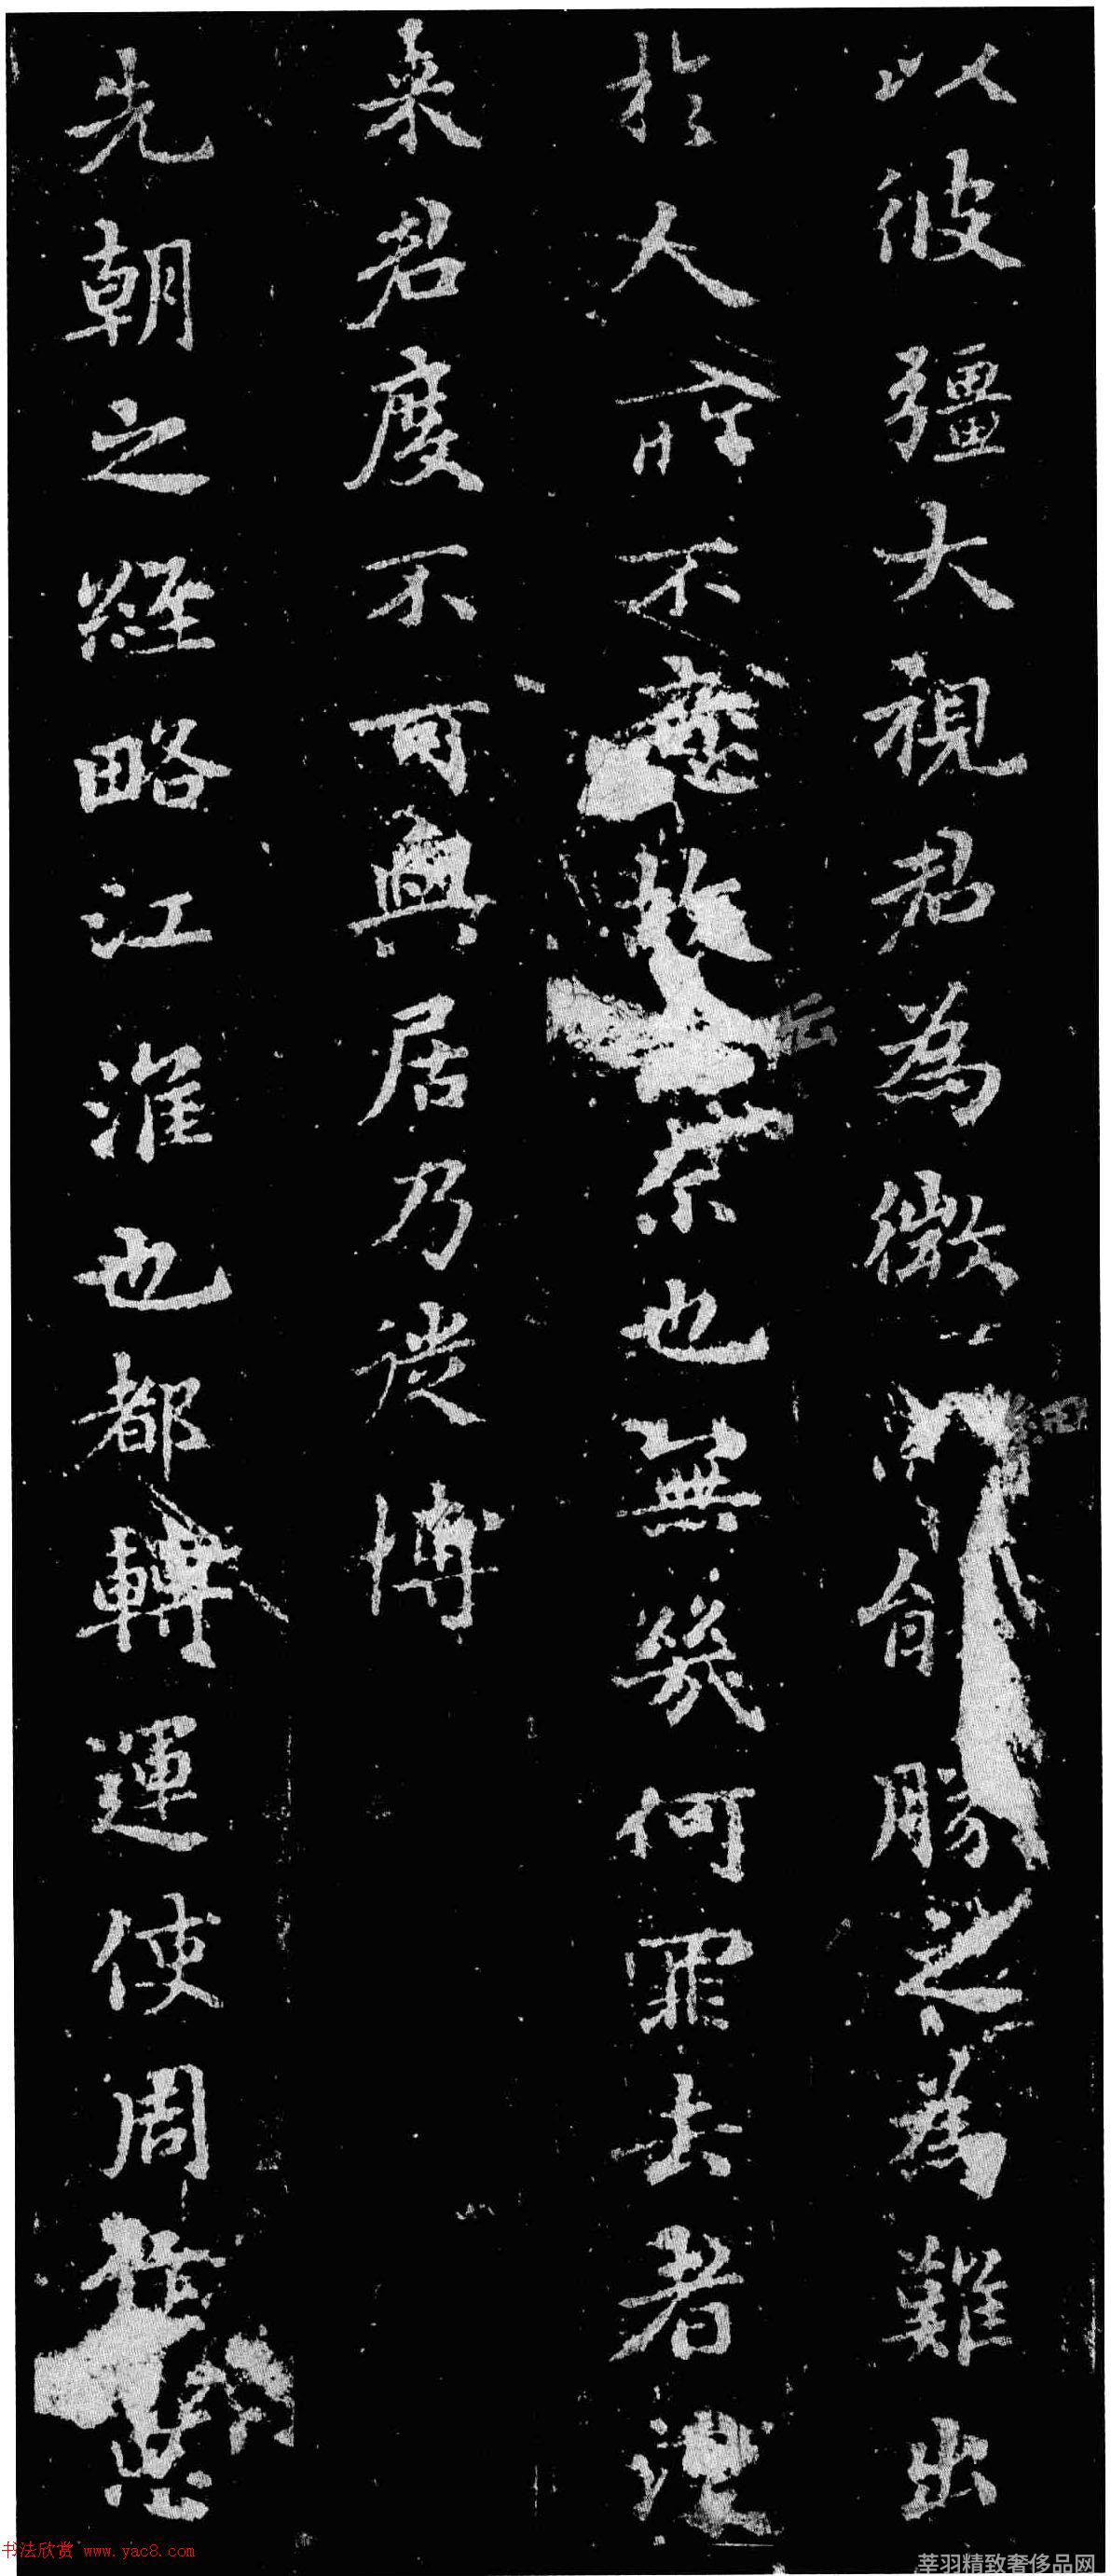 以彼彊大視君為微自勝之為難出
於人所不故云也無幾何罪去者
来君度不可與居乃從博
先朝之經略江淮也都轉運使周
书法欣赏 www.yac8.com
莘羽精致奢侈品网